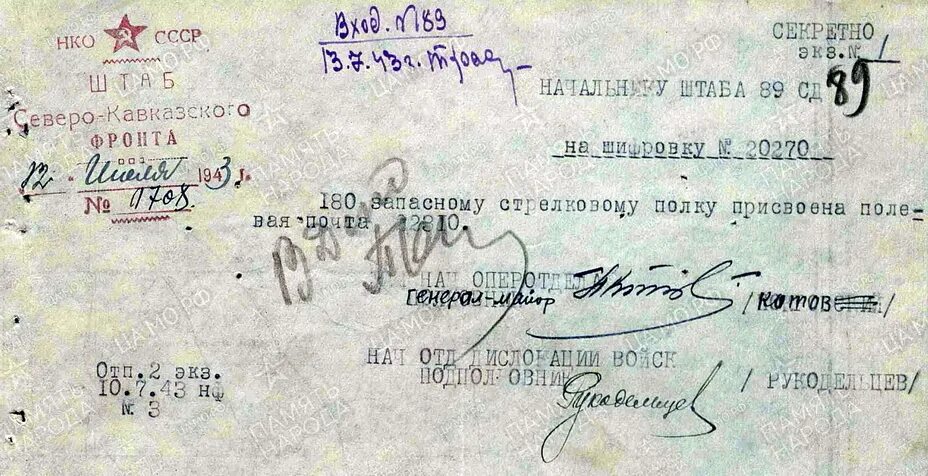 Вход. №89
13.7.43г.
СЕКРЕТНО
экз.№ 1
НКО СССР
ШТАБ
Северо-Кавказского
ФРОНТА
12 Июля 1943 г.
№ 1708.
НАЧАЛЬНИКУ ШТАБА 89 СД
89
на шифровку № 20270
180 запасному стрелковому полку присвоена поле-
вая почта 22810.
НАЧ ОПЕРОТДЕЛА
Генерал-майор / Котов /
НАЧ ОТД ДИСЛОКАЦИИ ВОЙСК
ПОДПОЛКОВНИК / РУКОДЕЛЬЦЕВ/
Рукодельцев
Отп.2 экз.
10.7.43 нф
№ 3
ПАМЯТЬ НАРОДА
ЦАМО.РФ